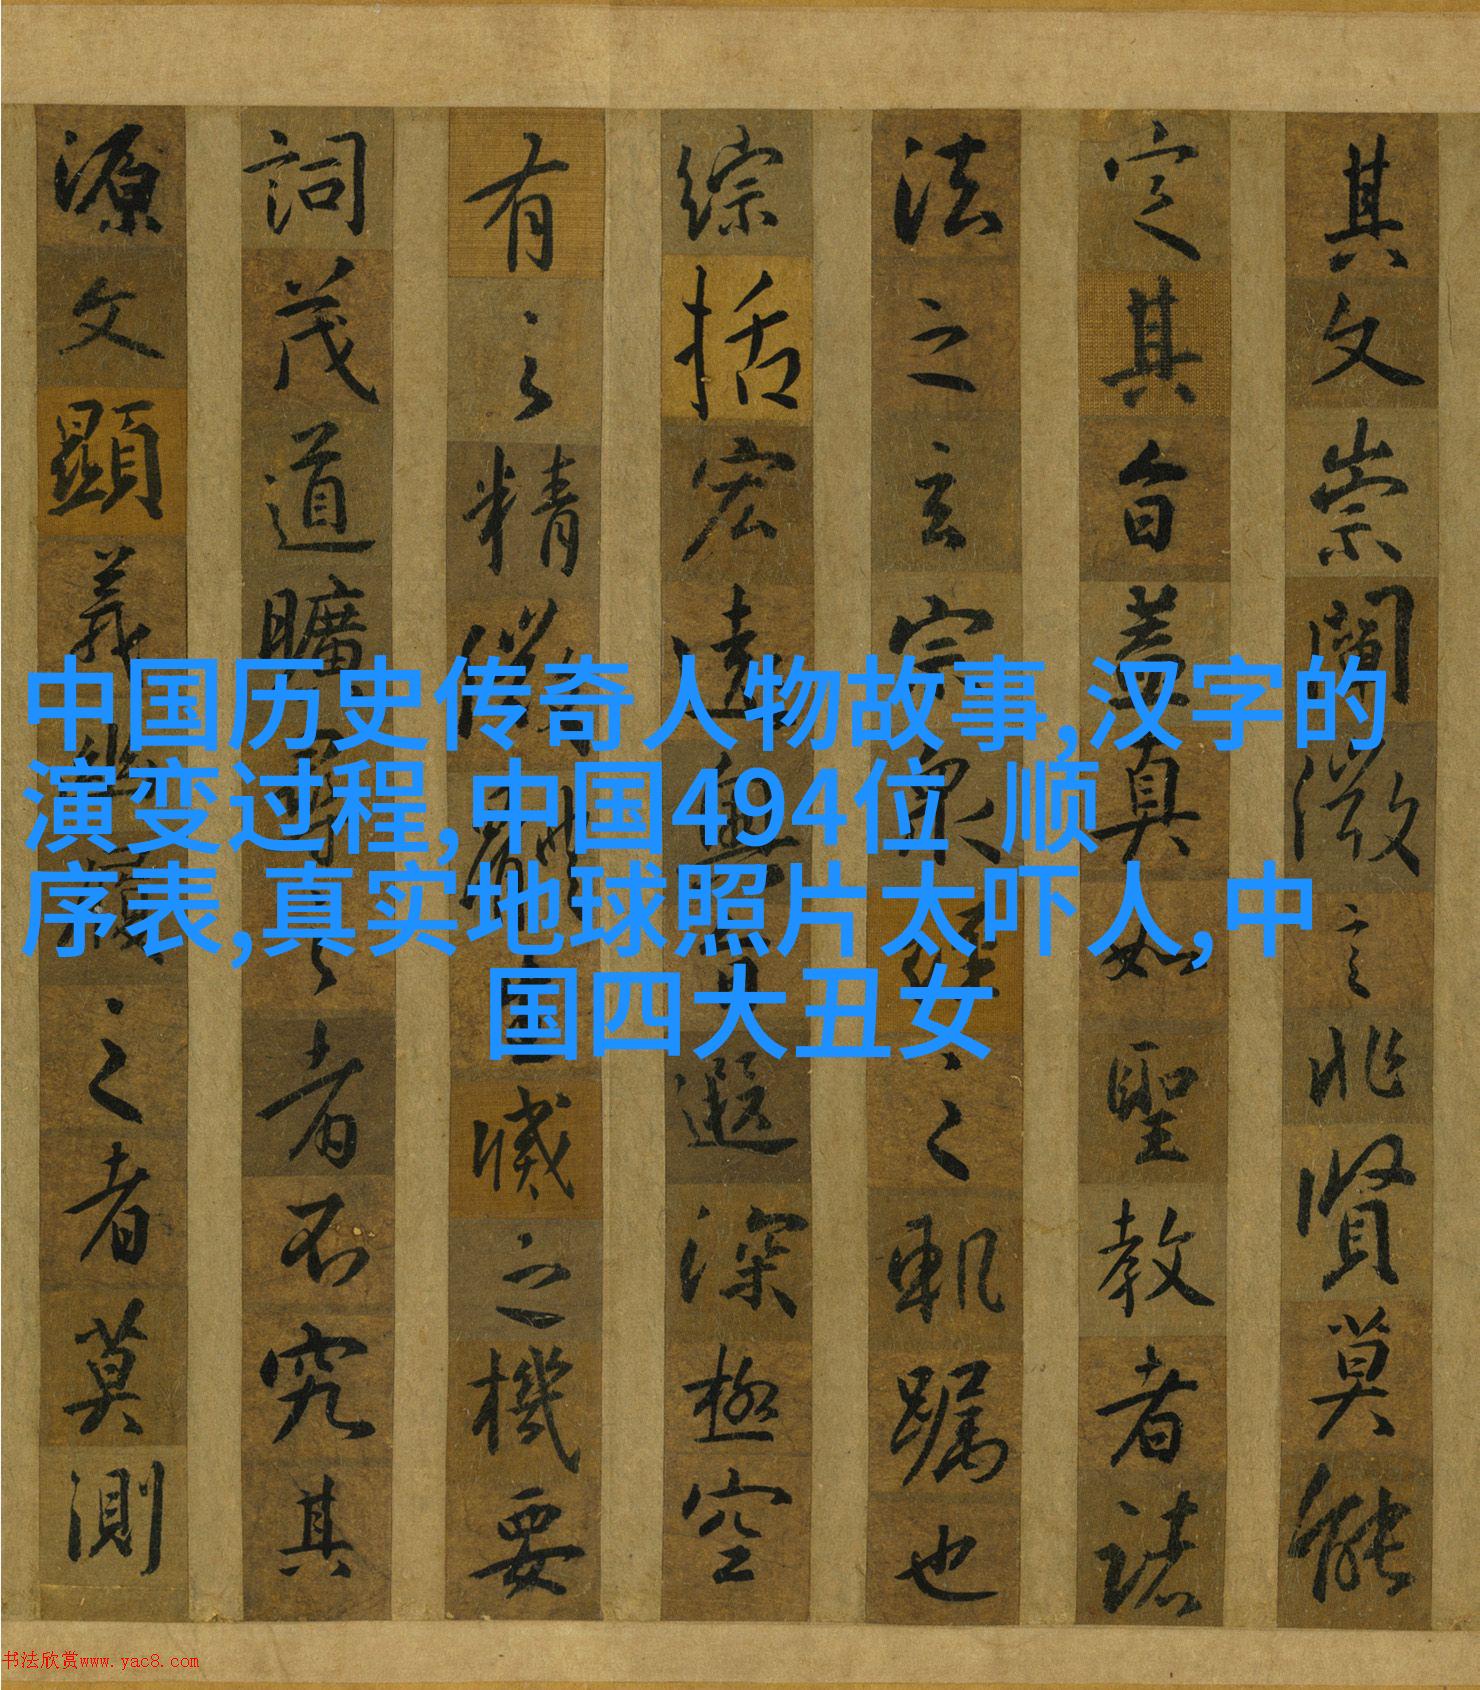 中国历史传奇人物故事,汉字的
演变过程,中国494位 顺
序表,真实地球照片太吓人,中
国四大丑女
其文崇闡微言非賢莫能
定其旨蓋真如聖教者諸
法之玄宗眾經之軌躅也
綜括宏遠奧旨遐深極空
有之精微體生滅之機要
詞茂道曠尋之者不究其
源文顯義幽履之者莫測
书法欣赏www.yac8.com